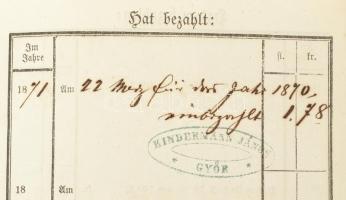 Hat bezahlt:
Im Jahre
fl. kr.
1871 Am 22 May für das Jahr 1870,
einbezahlt 1.78
KINDERMANN JÁNOS
GYŐR
18 Am